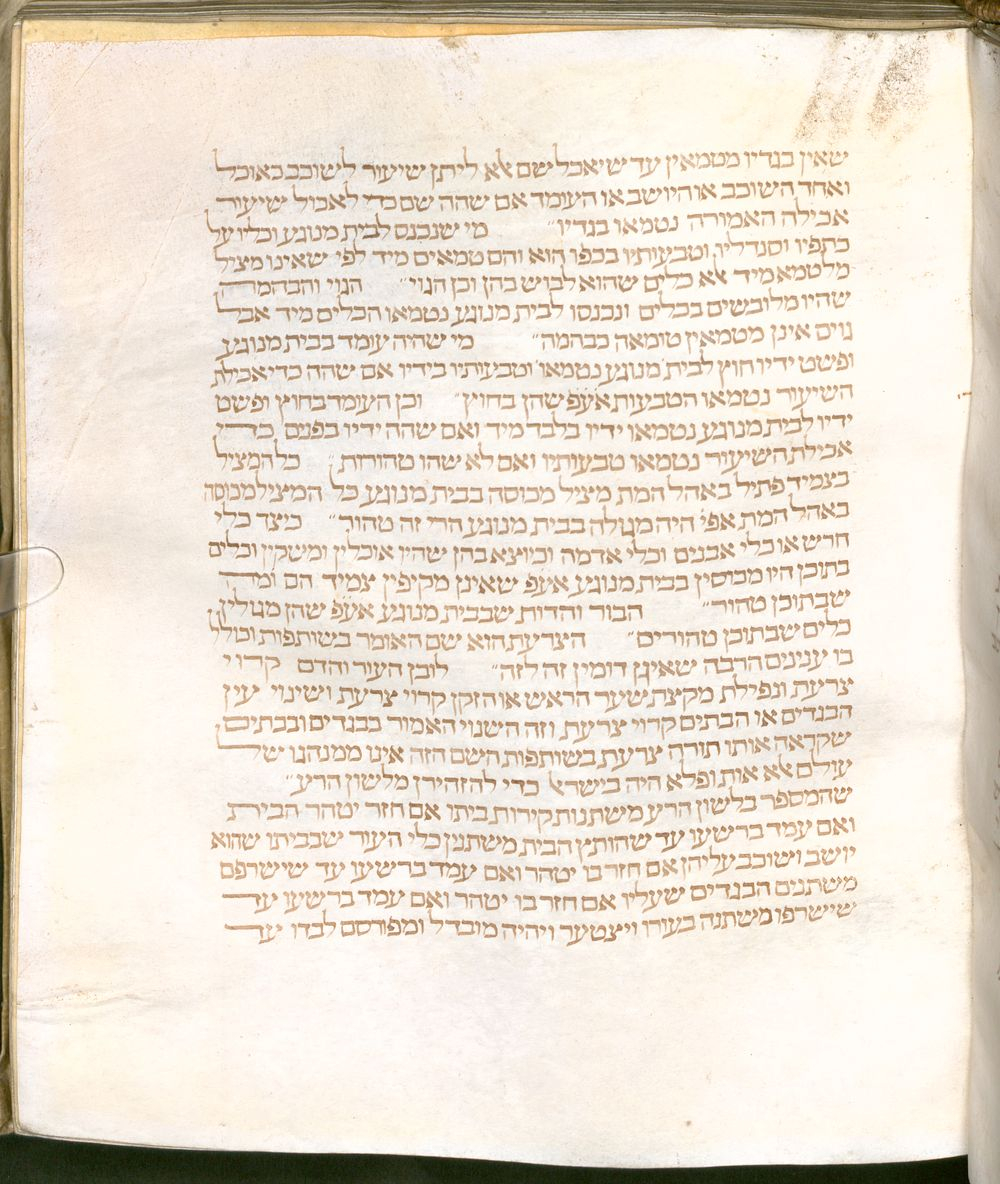 שאין בגדיו מטמאין עד שיאכל שם אלא ליתן שיעור לשוכב כאוכל
ואחד השוכב או היושב או העומד אם שהה שם כדי לאכול שיעור
אכילה האמורה נטמאו בגדיו״ מי שנכנס לבית מנוגע וכליו על
כתפיו וסנדליו וטבעותיו בכפו הוא והם טמאים מיד לפי שאינו מציל
מלטמא מיד אלא כלים שהוא לבוש בהן וכן הגוי״ הגוי והבהמה
שהיו מלובשים בכלים ונכנסו לבית מנוגע נטמאו הכלים מיד אבל
גוים אינן מטמאין טומאה כבהמה״ מי שהיה עומד בבית מנוגע
ופשט ידיו חוץ לבית מנוגע נטמאו וטבעותיו בידיו אם שהה כדי אכילת
השיעור נטמאו הטבעות אע״פ שהן בחוץ״ וכן העומד בחוץ ופשט
ידיו לבית מנוגע נטמאו ידיו בלבד מיד ואם שהה ידיו בפנים כדי
אכילת השיעור נטמאו טבעותיו ואם לא שהו טהורות״ כל המציל
בצמיד פתיל באהל המת מציל מכוסה בבית מנוגע כל המציל מכוסה
באהל המת אפי׳ היה מגולה בבית מנוגע הרי זה טהור״ כיצד כלי
חרש או כלי אבנים וכלי אדמה וכיוצא בהן שהיו אוכלין ומשקין וכלים
בתוכן היו מכוסין בבית מנוגע אע״פ שאינן מקיפין צמיד הם ומה
שבתוכן טהור״ הבור והדות שבבית מנוגע אע״פ שהן מגולין
כלים שבתוכן טהורים״ הצרעת הוא שם האומר בשותפות וכולל
בו ענינים הרבה שאינן דומין זה לזה״ לובן העור והדם קרוי
צרעת ונפילת מקצת שער הראש או הזקן קרוי צרעת ושינוי עין
הבגדים או הבתים קרוי צרעת וזה השנוי האמור בבגדים ובבתים
שקראה אותו תורה צרעת בשותפות השם הזה אינו ממנהגו של
עולם אלא אות ופלא היה בישראל כדי להזהירן מלשון הרע״
שהמספר בלשון הרע משתנות קירות ביתו אם חזר יטהר הבית
ואם עמד ברשעו עד שהותץ הבית משתנין כלי העור שבביתו שהוא
יושב ושוכב עליהן אם חזר בו יטהר ואם עמד ברשעו עד שישרפם
משתנים הבגדים שעליו אם חזר בו יטהר ואם עמד ברשעו עד
שיישרפו משתנה בעורו ויצטער ויהיה מובדל ומפורסם לבדו עד